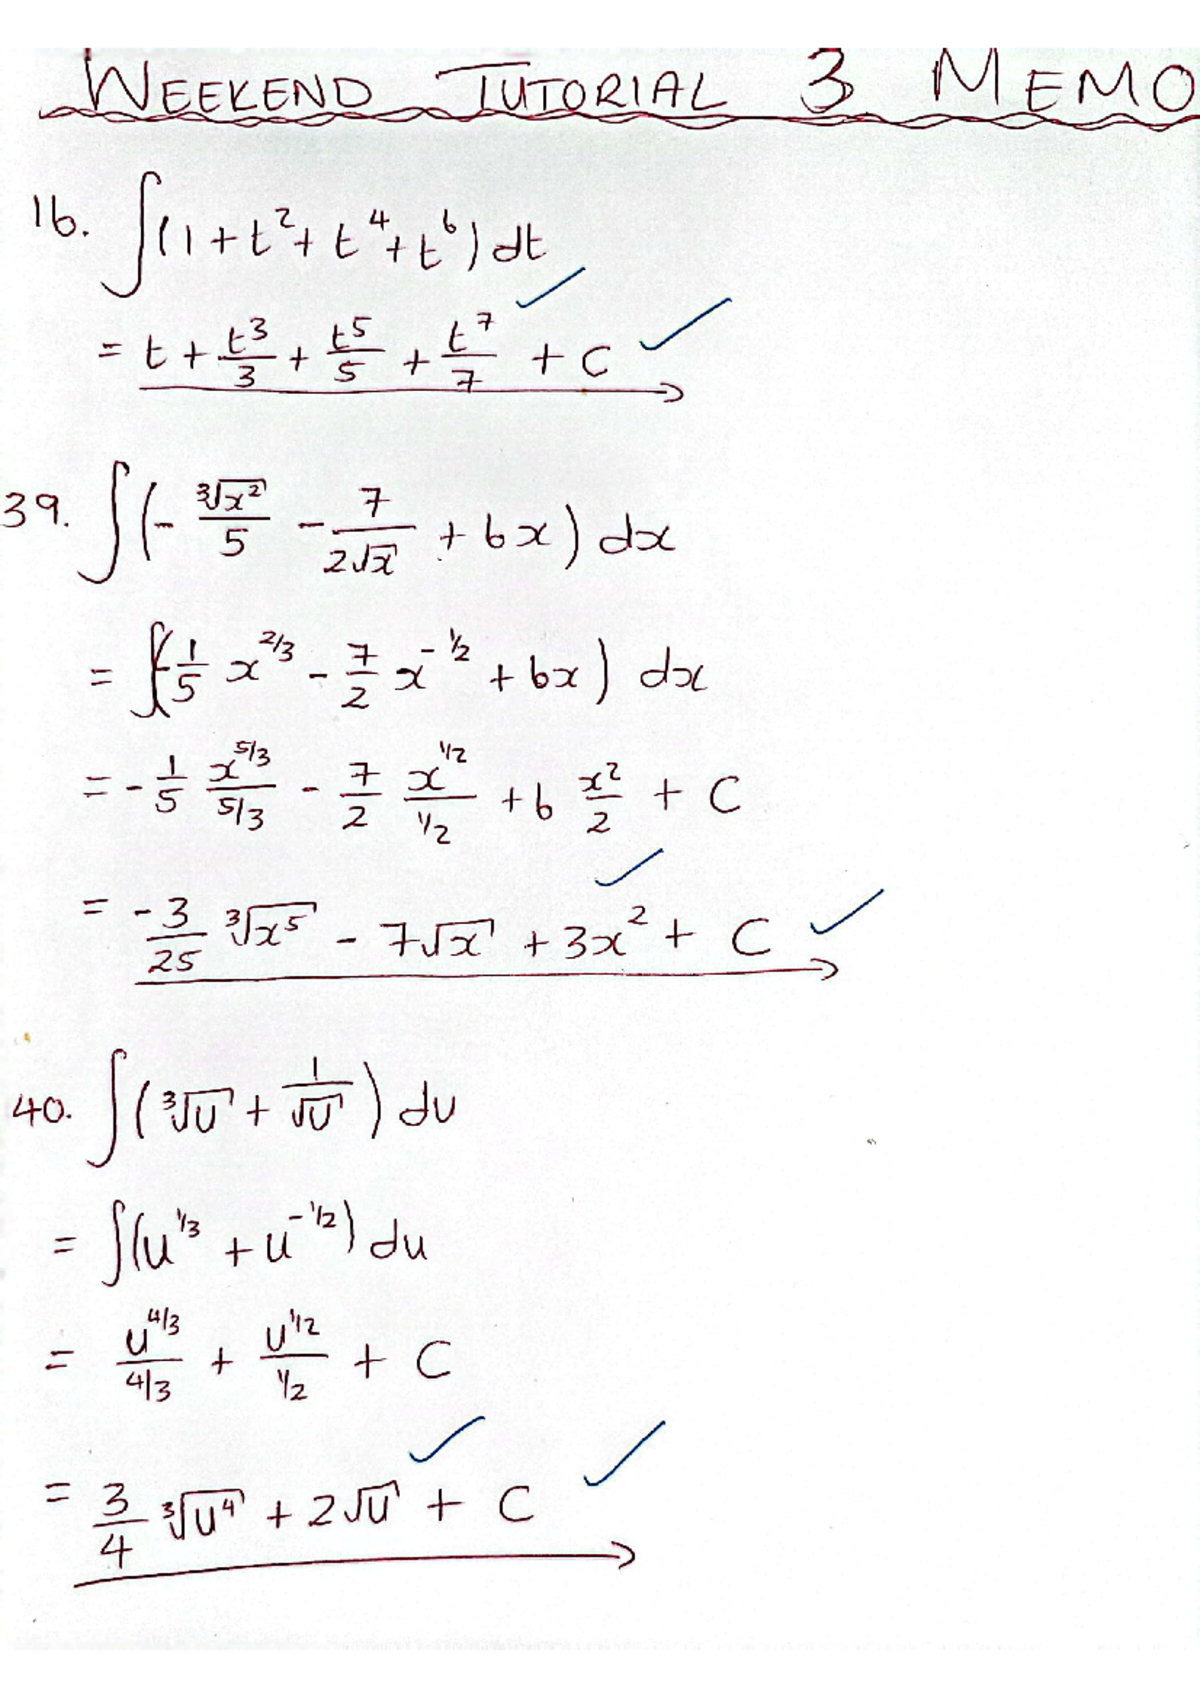 WEEKEND TUTORIAL 3 MEMO
16. ∫(1 + t² + t⁴ + t⁶) dt
= t + t³/3 + t⁵/5 + t⁷/7 + C
39. ∫(-∛x²/5 - 7/(2√x) + 6x) dx
= ∫(-1/5 x^(2/3) - 7/2 x^(-1/2) + 6x) dx
= -1/5 x^(5/3)/(5/3) - 7/2 x^(1/2)/(1/2) + 6 x²/2 + C
= -3/25 ∛x⁵ - 7√x + 3x² + C
40. ∫(∛u + 1/√u) du
= ∫(u^(1/3) + u^(-1/2)) du
= u^(4/3)/(4/3) + u^(1/2)/(1/2) + C
= 3/4 ∛u⁴ + 2√u + C